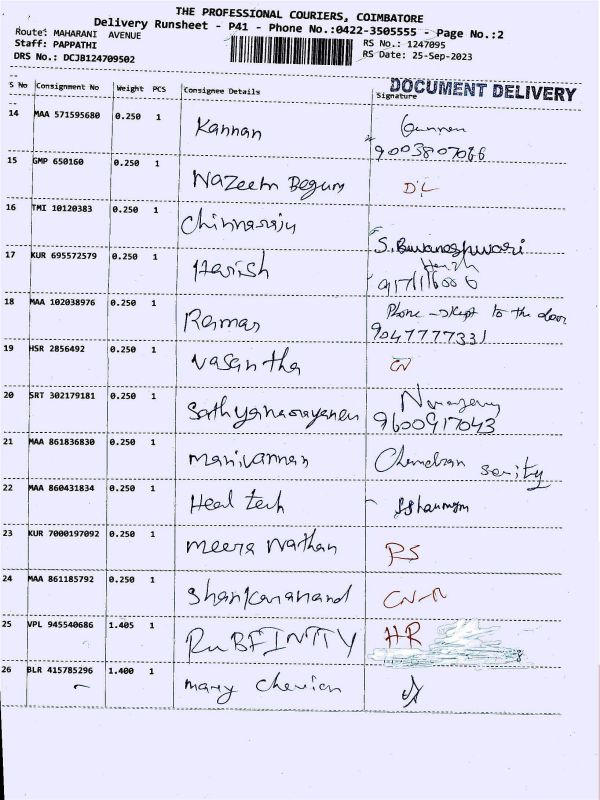 THE PROFESSIONAL COURIERS, COIMBATORE
Delivery Runsheet - P41 - Phone No.:0422-3505555 - Page No.:2
Route: MAHARANI AVENUE
Staff: PAPPATHI
DRS No.: DCJB124709502
RS No.: 1247095
RS Date: 25-Sep-2023
DOCUMENT DELIVERY
S No Consignment No Weight PCS Consignee Details Signature
14 MAA 571595680 0.250 1 Kannan
9003807066
15 GMP 650160 0.250 1 Nazeem Begum DL
16 TMI 10120383 0.250 1 Chinnaraju S. Buvaneshwari
17 KUR 695572579 0.250 1 Harish
18 MAA 102038976 0.250 1 Raman Phone to the door
9047777331
19 HSR 2856492 0.250 1 Vasantha
20 SRT 302179181 0.250 1 Sathyanarayanan
9600917043
21 MAA 861836830 0.250 1 Manivannan Chandran
22 MAA 860431834 0.250 1 Heal tech
23 KUR 7000197092 0.250 1 Meera Nathan RS
24 MAA 861185792 0.250 1 Shankaranand
25 VPL 945540686 1.405 1 RUBFINITY HR
26 BLR 415785296 1.400 1 Mary Cherian